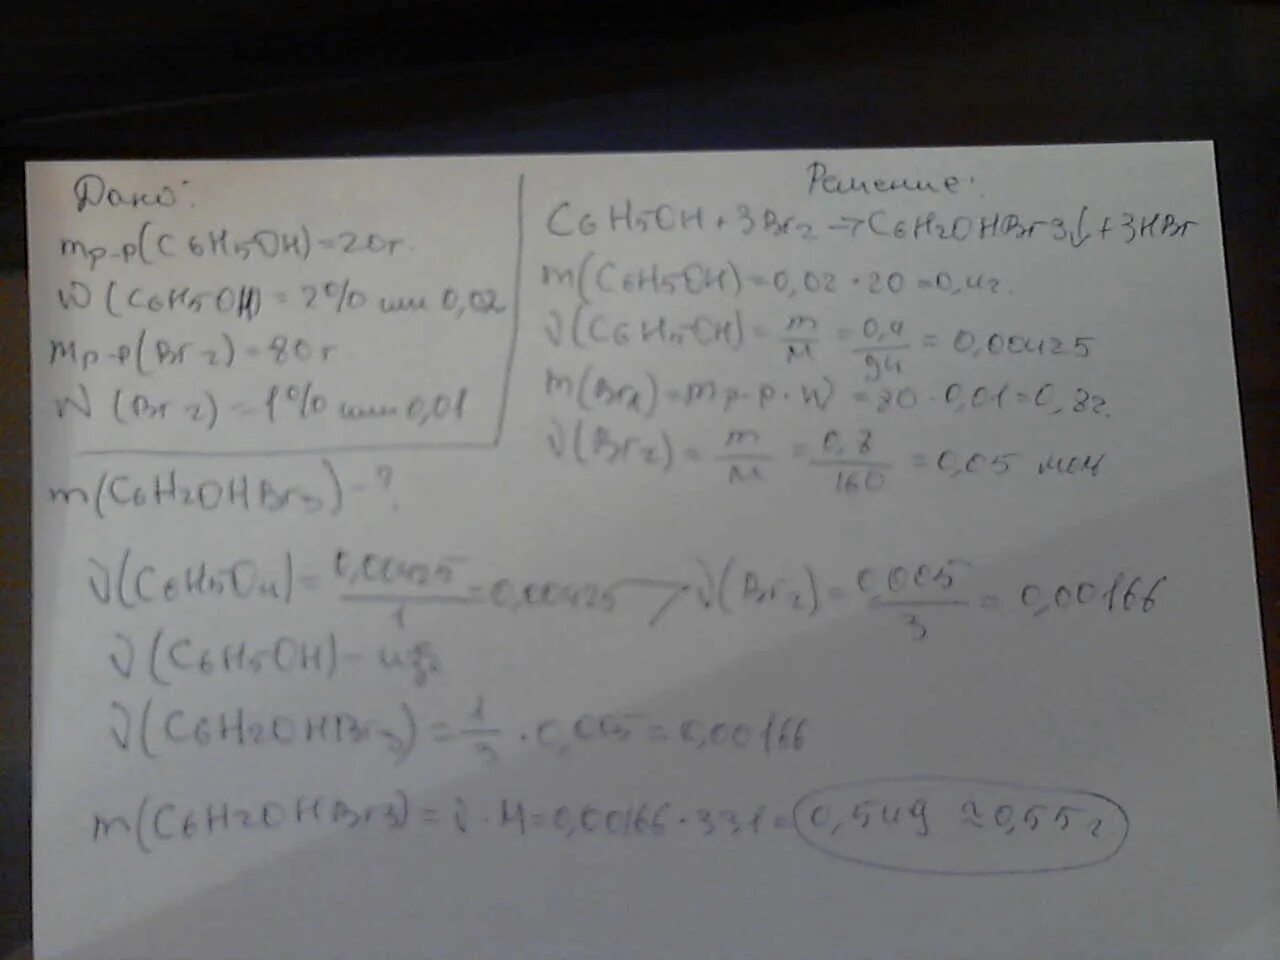 Дано:
mр-р(C6H5OH)=20г.
W(C6H5OH)=2% или 0,02
mр-р(Br2)=80г.
W(Br2)=1% или 0,01
m(C6H2OHBr3)-?
Решение:
C6H5OH+3Br2→C6H2OHBr3↓+3HBr
m(C6H5OH)=0,02·20=0,4г.
ν(C6H5OH)=m/M=0,4/94=0,00425
m(Br2)=mр-р·W=80·0,01=0,8г.
ν(Br2)=m/M=0,8/160=0,05 моль
ν(C6H5OH)=0,00425/1=0,00425 > ν(Br2)=0,005/3=0,00166
ν(C6H5OH)-изб
ν(C6H2OHBr3)=1/3·0,005=0,00166
m(C6H2OHBr3)=ν·M=0,00166·331=0,549≈0,55г